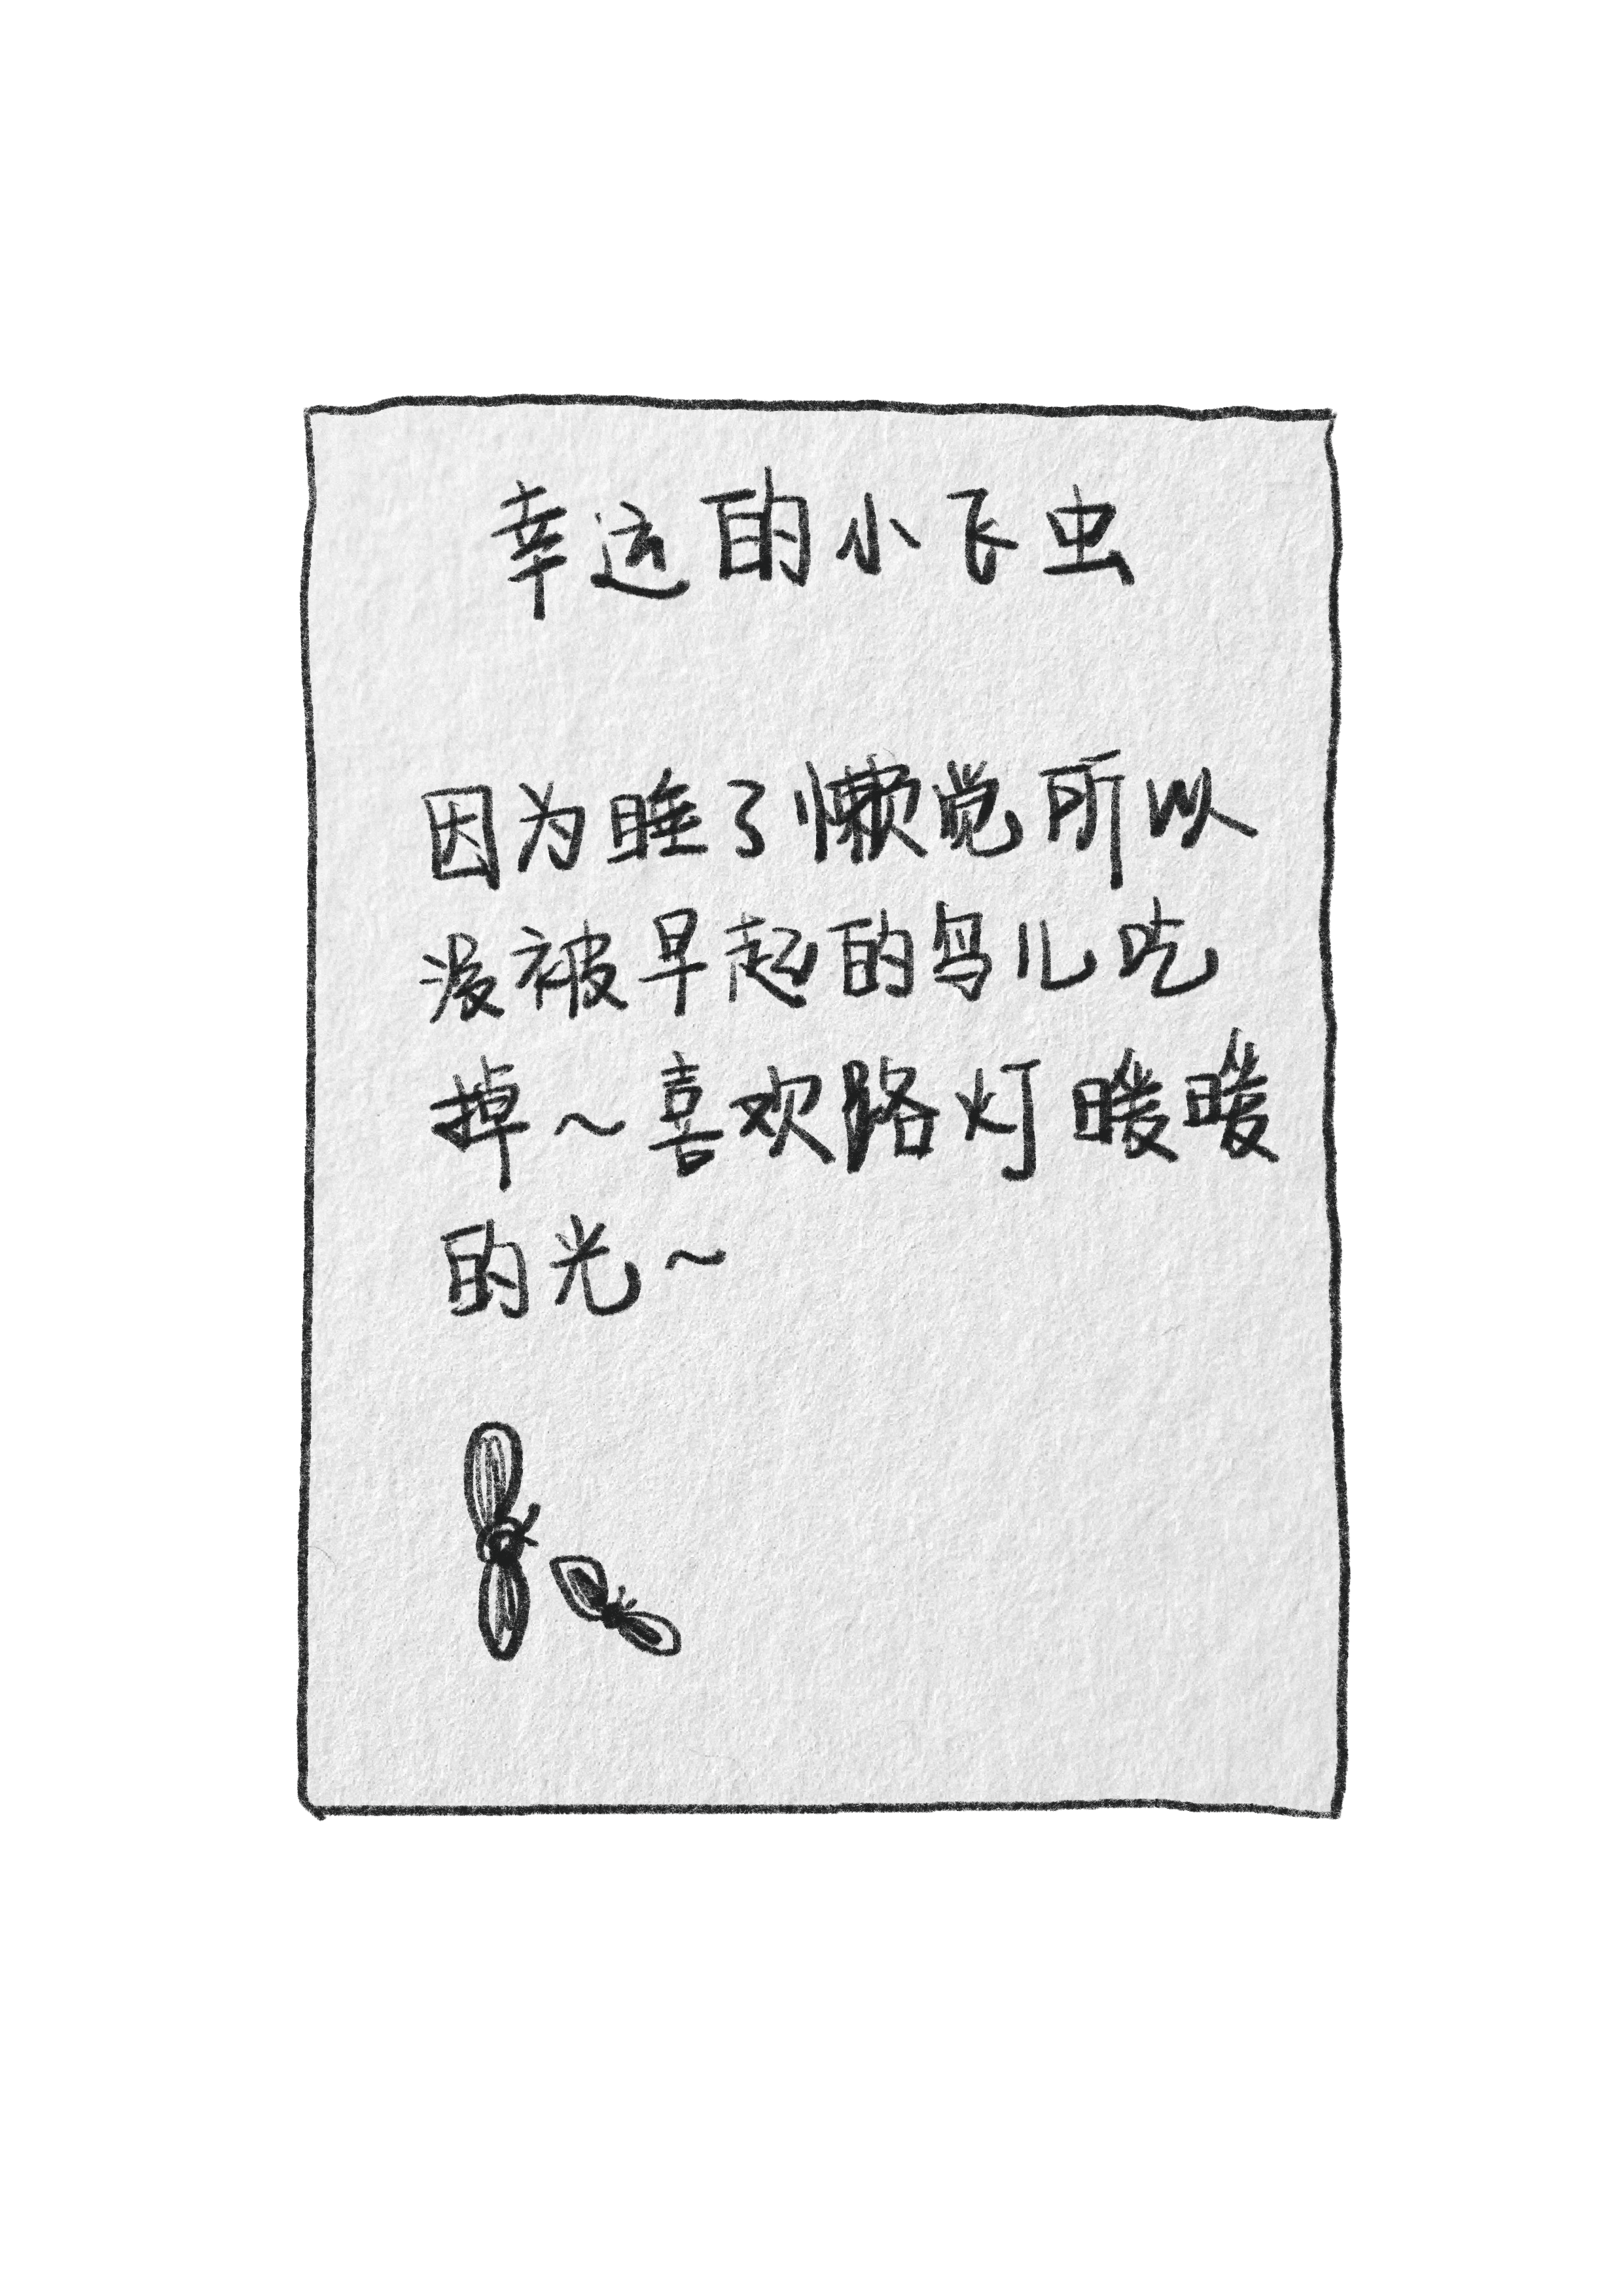 幸运的小飞虫
因为睡了懒觉所以
没被早起的鸟儿吃
掉～喜欢路灯暖暖
的光～